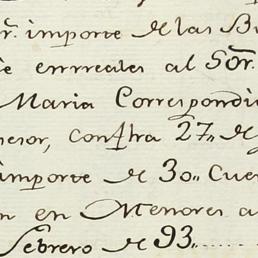 r. importe de las Bu
e enrreales al Sor.
Maria Correspondi
esor, consstra 27,, de
importe de 30,, Cuer
n en Menores a
Febrero de 93......